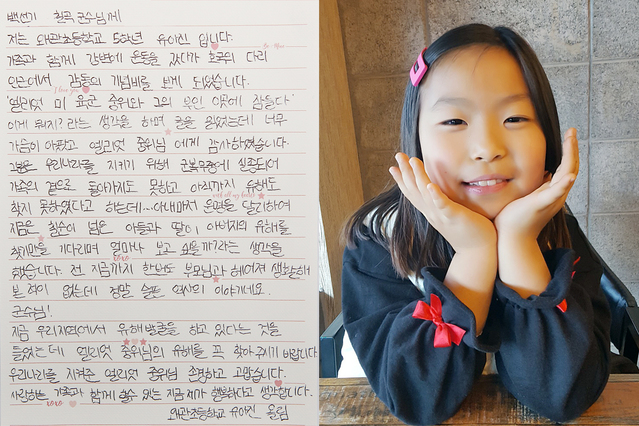 백선기 칠곡 군수님께
저는 왜관초등학교 5학년 유아진 입니다.
가족과 함께 강변에 운동을 갔다가 호국의 다리
인근에서 감동의 기념비를 보게 되었습니다.
I love you
'엘리엇 미 육군 중위와 그의 부인 이곳에 잠들다'
이게 뭐지? 라는 생각을 하며 글을 읽었는데! 너무
가슴이 아팠고 엘리엇 중위님 에게 감사하였습니다.
그분은 우리나라를 지키기 위해 군복무중에 실종되어
가족의 곁으로 돌아가지도 못하고 아직까지 유해도
with all my heart
찾지 못하였다고 하는데...아내마저 은편을 달리하여
지금은 칠순이 넘은 아들과 딸이 아버지의 유해를
찾기만을 기다리며 얼마나 보고 싶을까?라는 생각을
했습니다. 전 지금까지 한번도 부모님과 헤어져 생활해
본 적이 없는데 정말 슬픈 역사의 이야기네요.
군수님!
지금 우리지역에서 유해발굴을 하고 있다는 것을
들었는데 엘리엇 중위님의 유해를 꼭 찾아주시기 바랍니다.
우리나라를 지켜준 엘리엇 중위님 존경하고 고맙습니다.
사랑하는 가족과 함께 할수 있는 지금 제가 행복하다고 생각합니다.
왜관초등학교 유아진 올림